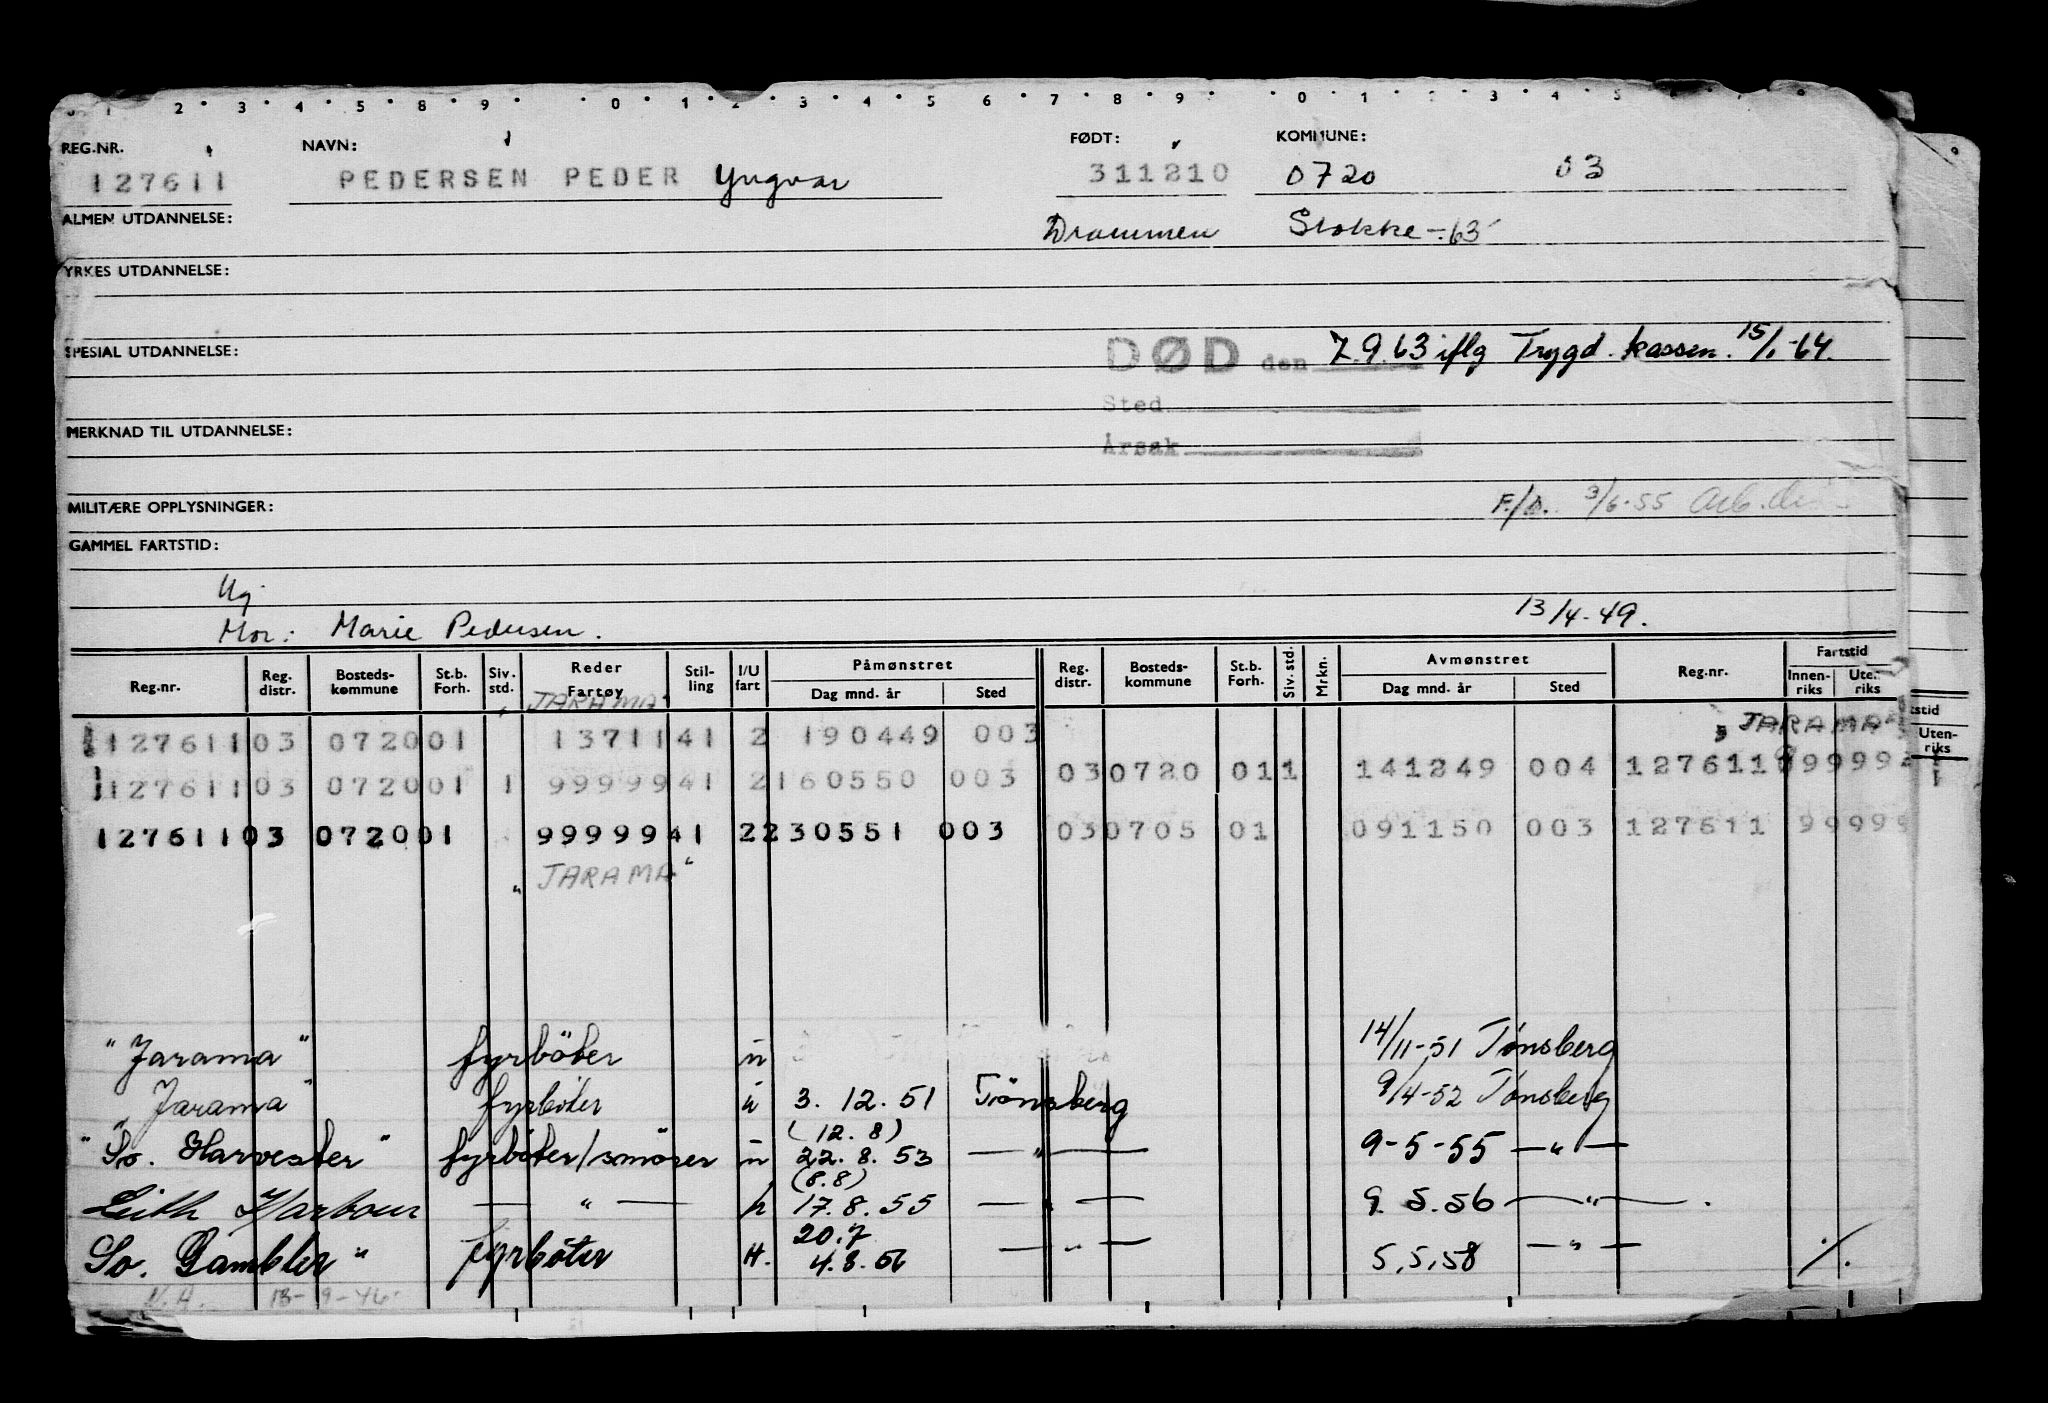 0 1 2 3 4 5 8 9 0 1 2 3 4 5 6 7 8 9 0 1 3 4 5
REG.NR. NAVN: FØDT: KOMMUNE:
127611 PEDERSEN PEDER Yngvar 311210 0720 03
ALMEN UTDANNELSE: Drammen Stokke -63
YRKES UTDANNELSE:
SPESIAL UTDANNELSE: DØD den 7.9.63 iflg Trygd.kassen. 15/1-64.
Sted
MERKNAD TIL UTDANNELSE: Årsak
MILITÆRE OPPLYSNINGER: F./D. 3/6-55 Arb.dir
GAMMEL FARTSTID:
Ug.
13/4-49.
Mor: Marie Pedersen.
Reg.nr. Reg. distr. Bosteds- kommune St.b. Forh. Siv. std. Reder Fartøy Stil- ling I/U fart Påmønstret Dag mnd. år Sted Reg. distr. Bosteds- kommune St.b. Forh. Siv. std. Mrkn. Avmønstret Dag mnd. år Sted Reg.nr. Fartstid Innen- riks Uten- riks
"JARAMA" "JARAMA"
127611 03 0720 01 13711 41 2 190449 003
030720 01 1 141249 004 127611 99999
127611 03 0720 01 1 99999 41 2 160550 003
127611 03 0720 01 99999 41 2 230551 003 030705 01 091150 003 127611 99999
"JARAMA"
"Jarama" fyrböter u 14/11-51 Tønsberg
"Jarama" fyrböter u 3. 12. 51 Tönsberg 9/4-52 Tønsberg
(12.8)
"So. Harvester" fyrböter/smörer u 22. 8. 53 — " — 9-5-55 — " —
(8.8)
Leith Harbour — " — h 17. 8. 55 — " — 9. 5. 56 — " — .
20.7
So. Gambler" fyrböter H. 4.8.56 — " — 5.5.58 — " — ./.
N.A. 13-9-46
tstid
Uten-
riks